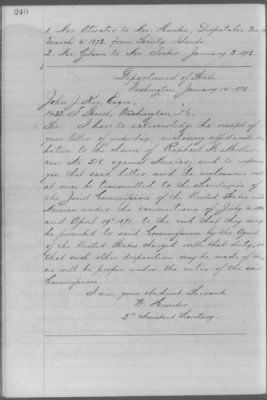 240
1. Mr. to Mr. Hunter, Dispatch No.
March 6 1873, from Islands.
2. Mr. Gibson to Mr. January 3 1873.
Department of State
Washington January 10 1873.
John J. Key, Esqre,
Street, Washington, D.C.
Sir: I have to acknowledge the receipt of
your letter of yesterday, enclosing affidavits in
relation to the claim of Raphael M.
case No. 518 against Mexico, and to inform
you that said letter and its enclosures will
at once be transmitted to the Secretaries of
the Joint Commission of the United States and
Mexico under the conventions of July 4, 1868
and April 19th 1871, to the end that they may
be presented to said Commission by the Agent
of the United States charged with that duty, or
that such other disposition may be made of them
as will be proper under the rules of the said
Commission.
I am, your obedient Servant
W. Hunter
2nd Assistant Secretary.